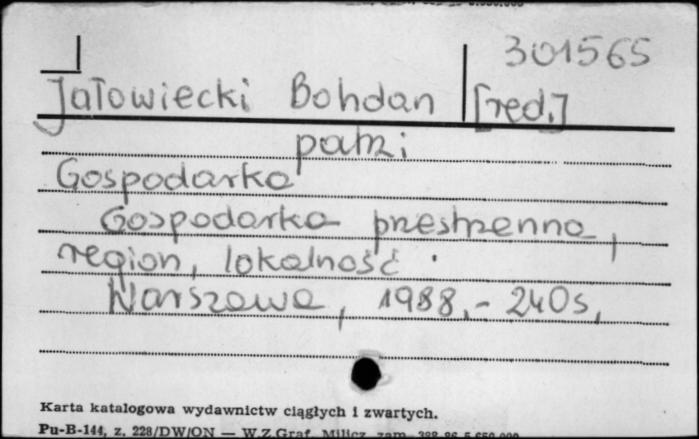 301565
Jałowiecki Bohdan [red.]
patrz:
Gospodarka
Gospodarka przestrzenna,
region, lokalność.
Warszawa, 1988,- 240s,
Karta katalogowa wydawnictw ciągłych i zwartych.
Pu-B-144, z. 228/DW/ON — W.Z.Graf. Milicz, zam.